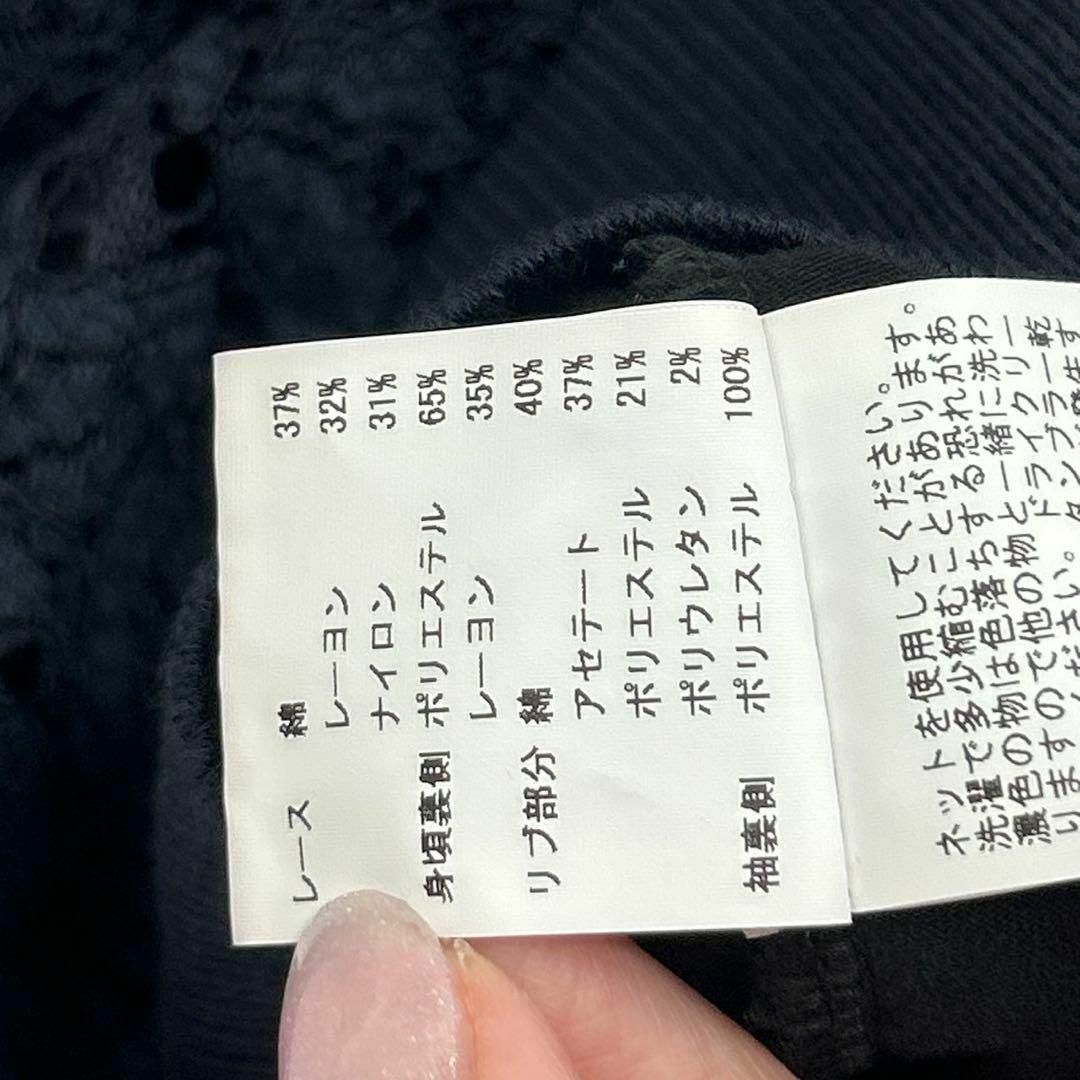 レース 綿 37%
レーヨン 32%
ナイロン 31%
身頃裏側 ポリエステル 65%
レーヨン 35%
リブ部分 綿 40%
アセテート 37%
ポリエステル 21%
ポリウレタン 2%
袖裏側 ポリエステル 100%
ネットを使用してください。
洗濯で多少縮むことがあります。
濃色の物は色落ちする恐れがあ
りますので他の物と一緒に洗わ
ください。